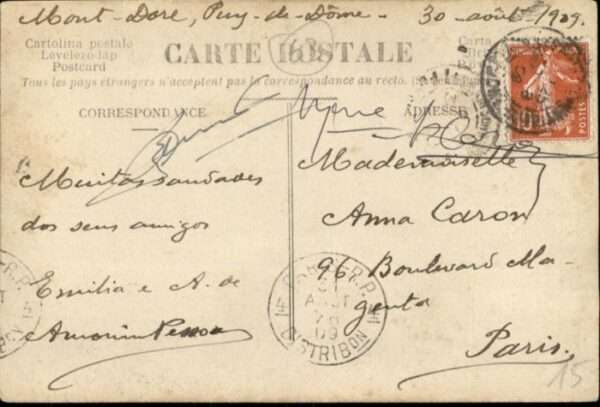 Mont-Dore, Puy-de-Dôme. 30 août 1909.
Cartolina postale
Levelezo-lap
Postcard
CARTE POSTALE
Tous les pays étrangers n'acceptent pas la correspondance au recto.
CORRESPONDANCE
ADRESSE
Muitas saudades
dos seus amigos
Emilia e A. de
Amorim Pessoa
Mademoiselle
Anna Caron
96 Boulevard Ma-
genta
Paris.
POSTES
DISTRIBON
09
15